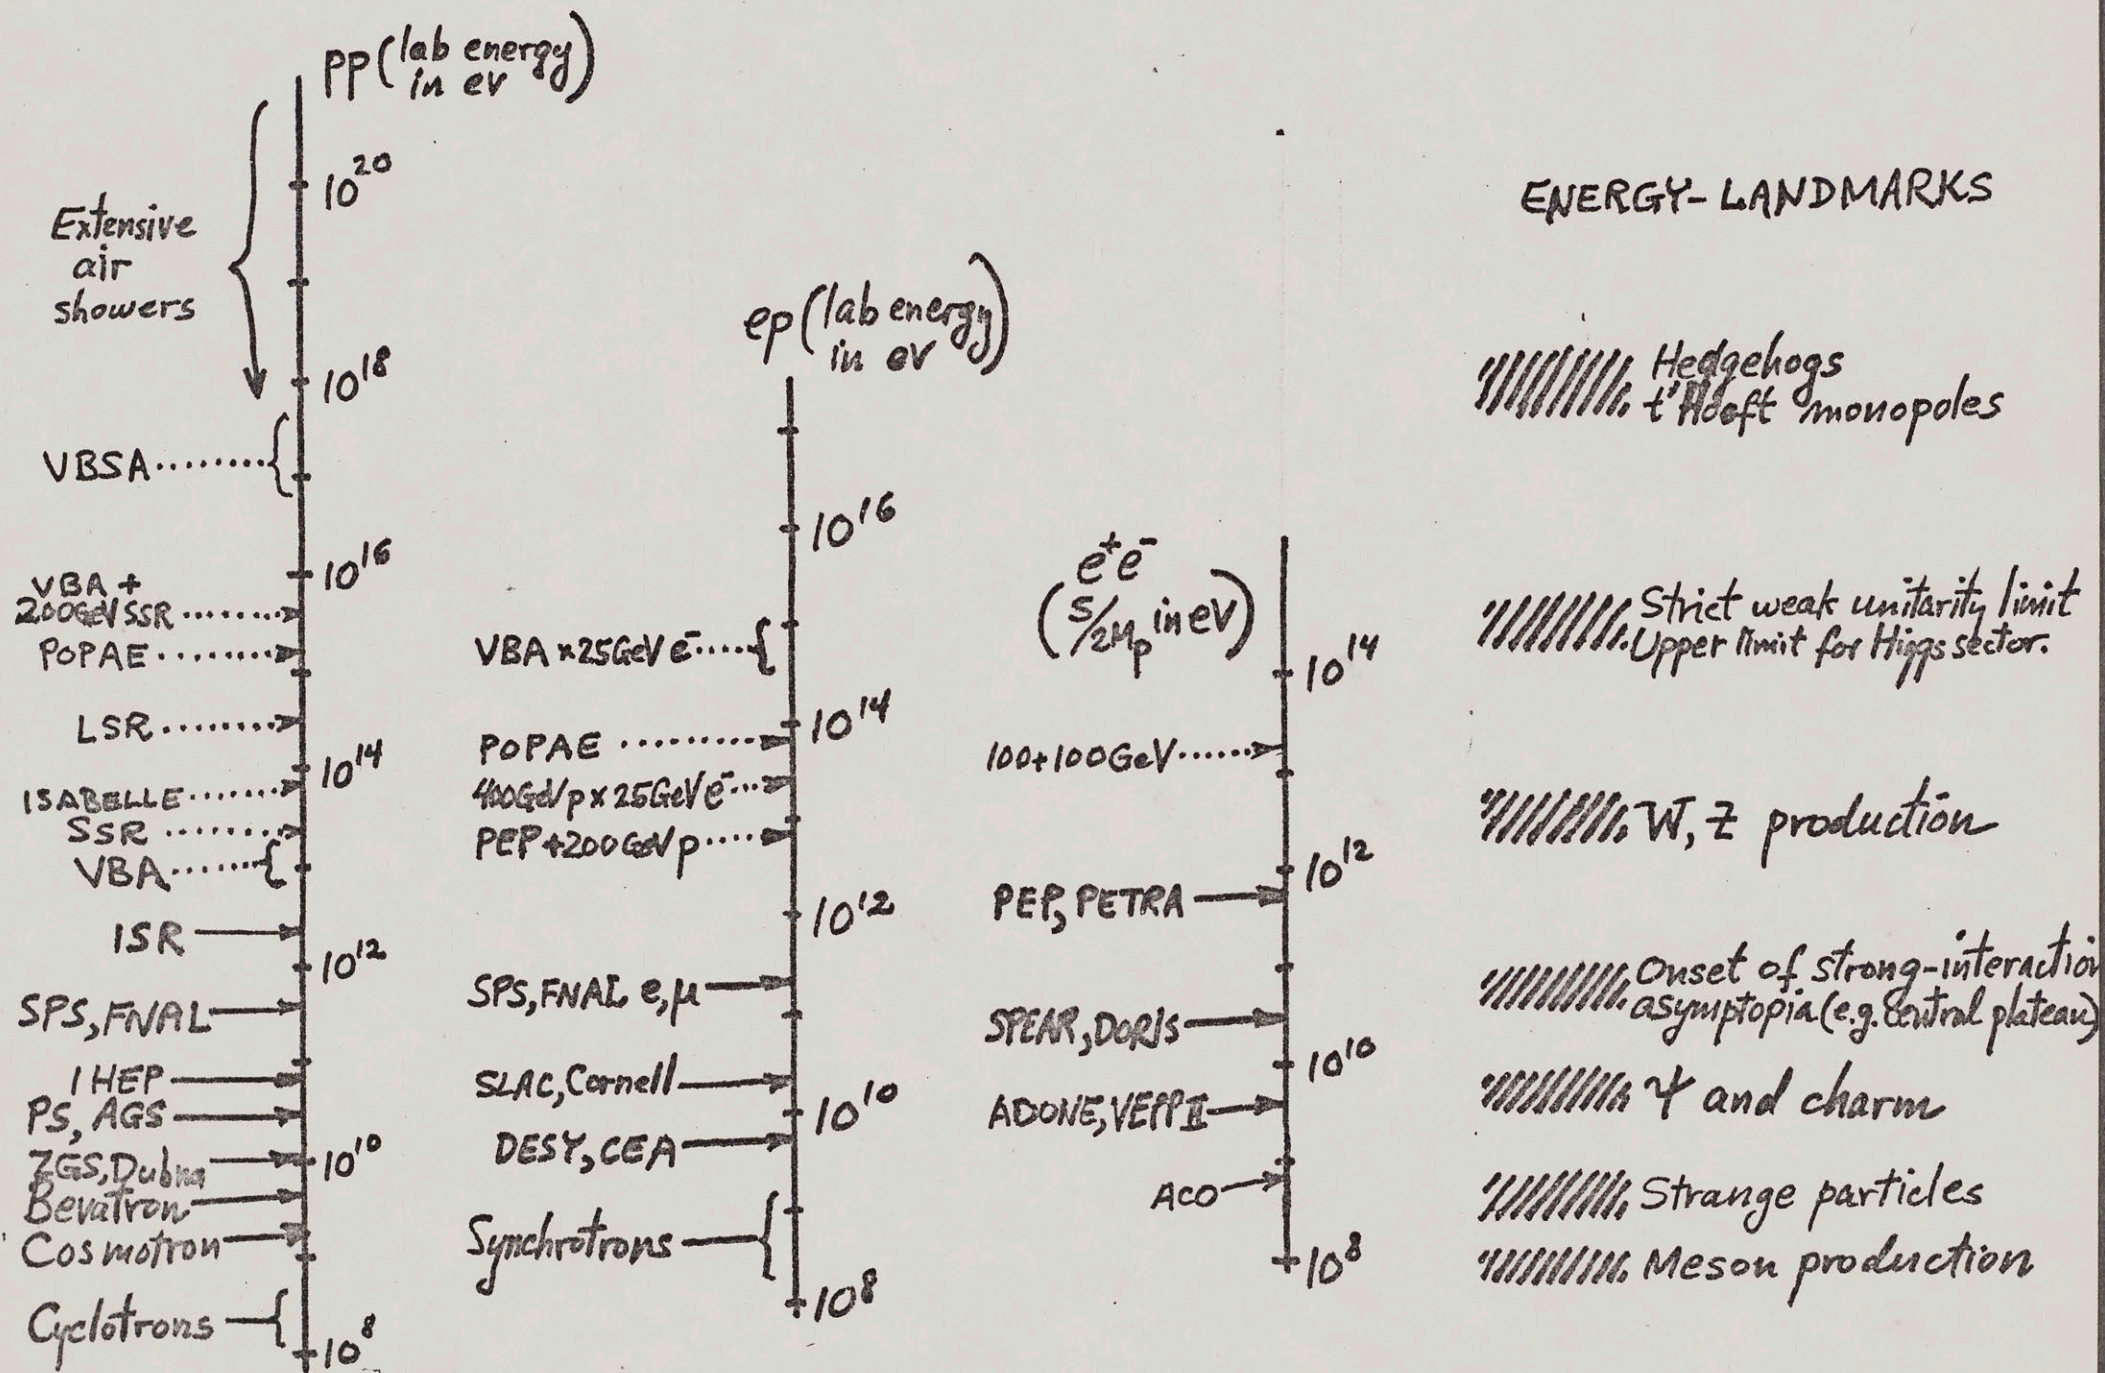 pp (lab energy
in ev)
10^20
Extensive
air
showers
10^18
VBSA
10^16
VBA +
200GeV SSR
POPAE
LSR
10^14
ISABELLE
SSR
VBA
ISR
10^12
SPS, FNAL
IHEP
PS, AGS
ZGS, Dubna
10^10
Bevatron
Cosmotron
Cyclotrons
10^8
ep (lab energy
in ev)
10^16
VBA x 25GeV e^-
10^14
POPAE
400GeV p x 25GeV e^-
PEP + 200GeV p
10^12
SPS, FNAL e, μ
SLAC, Cornell
10^10
DESY, CEA
Synchrotrons
10^8
e^+ e^-
(S/2M_p in eV)
10^14
100+100GeV
10^12
PEP, PETRA
SPEAR, DORIS
10^10
ADONE, VEPP II
ACO
10^8
ENERGY-LANDMARKS
Hedgehogs
t'Hooft monopoles
Strict weak unitarity limit
Upper limit for Higgs sector.
W, Z production
Onset of strong-interaction
asymptopia (e.g. central plateau)
Ψ and charm
Strange particles
Meson production